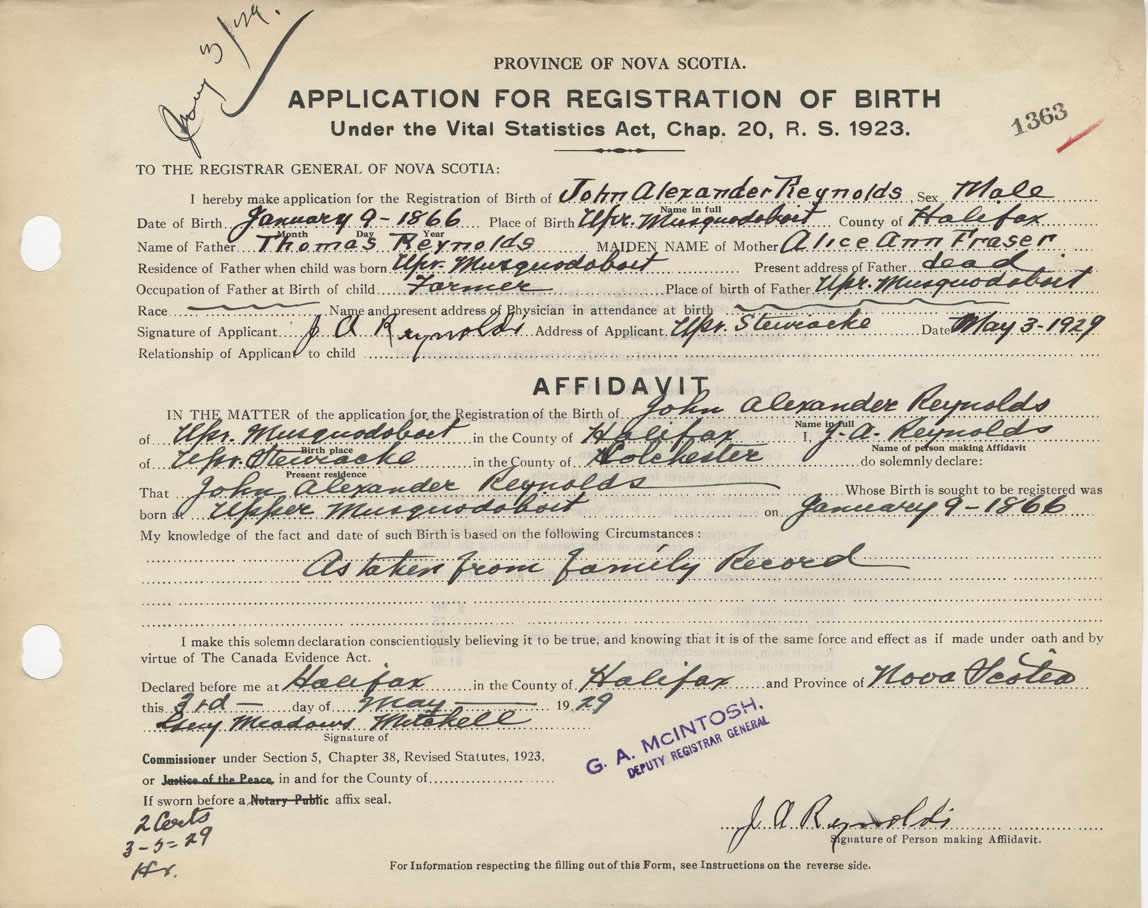 May 3/29.
PROVINCE OF NOVA SCOTIA.
APPLICATION FOR REGISTRATION OF BIRTH
Under the Vital Statistics Act, Chap. 20, R. S. 1923.
1363
TO THE REGISTRAR GENERAL OF NOVA SCOTIA:
I hereby make application for the Registration of Birth of John Alexander Reynolds Sex Male
Name in full
Date of Birth January 9 - 1866 Place of Birth Upr. Musquodoboit County of Halifax
Month Day Year
Name of Father Thomas Reynolds MAIDEN NAME of Mother Alice Ann Fraser
Residence of Father when child was born Upr. Musquodoboit Present address of Father dead
Occupation of Father at Birth of child Farmer Place of birth of Father Upr. Musquodoboit
Race Name and present address of Physician in attendance at birth
Signature of Applicant J A Reynolds Address of Applicant Upr. Stewiacke Date May 3 - 1929
Relationship of Applicant to child
AFFIDAVIT
IN THE MATTER of the application for the Registration of the Birth of John Alexander Reynolds
Name in full
of Upr. Musquodoboit in the County of Halifax I, J. A. Reynolds
Birth place Name of person making Affidavit
of Upr. Stewiacke in the County of Colchester do solemnly declare:
Present residence
That John Alexander Reynolds Whose Birth is sought to be registered was
born at Upper Musquodoboit on January 9 - 1866
My knowledge of the fact and date of such Birth is based on the following Circumstances:
As taken from family Record
I make this solemn declaration conscientiously believing it to be true, and knowing that it is of the same force and effect as if made under oath and by
virtue of The Canada Evidence Act.
Declared before me at Halifax in the County of Halifax and Province of Nova Scotia
this 3rd - day of May 1929
Meadows Mitchell
Signature of
Commissioner under Section 5, Chapter 38, Revised Statutes, 1923,
or Justice of the Peace, in and for the County of
If sworn before a Notary Public affix seal.
G. A. McINTOSH,
DEPUTY REGISTRAR GENERAL
2 Certs
3-5-29
J. A Reynolds
Signature of Person making Affidavit.
For Information respecting the filling out of this Form, see Instructions on the reverse side.